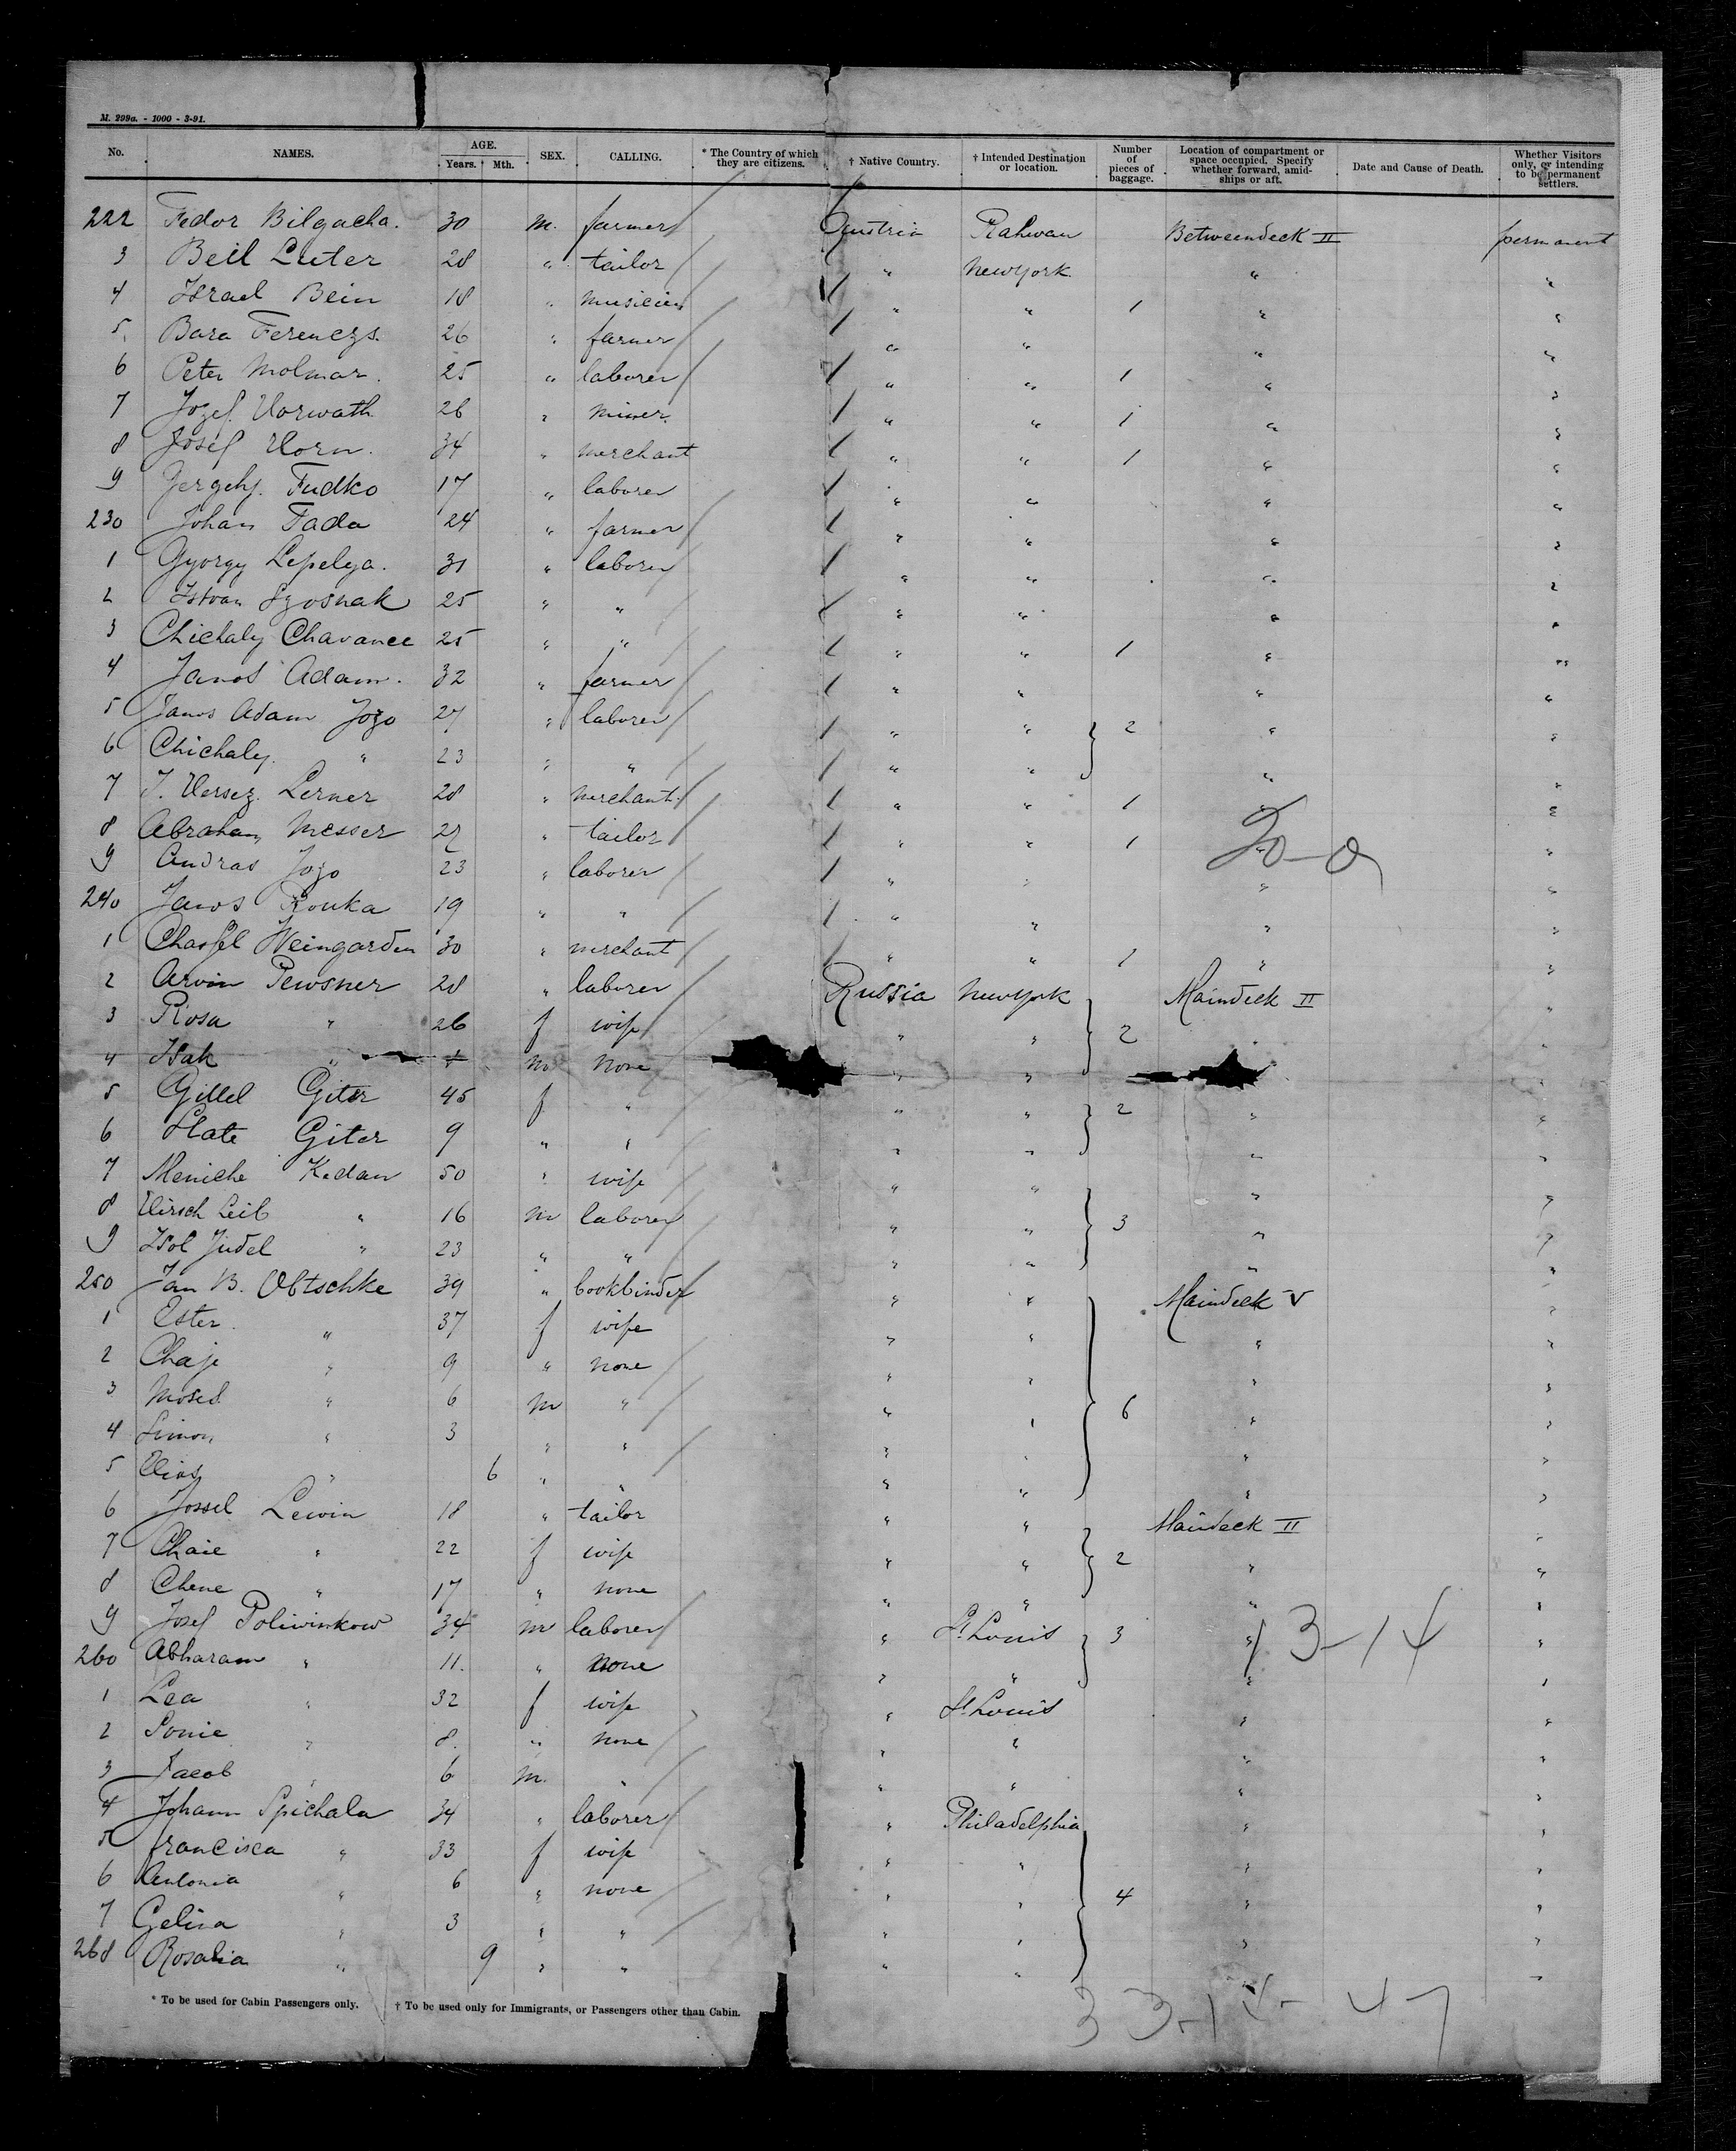 M. 299a. - 1000 - 3-91.
No. NAMES. AGE. Years. Mth. SEX. CALLING. * The Country of which they are citizens. † Native Country. † Intended Destination or location. Number of pieces of baggage. Location of compartment or space occupied. Specify whether forward, amidships or aft. Date and Cause of Death. Whether Visitors only, or intending to be permanent settlers.
222 Fedor Bilgacha. 30 m. farmer Austria Rahway Betweendeck II permanent
3 Beil Luter 28 " tailor " New York " "
4 Israel Bein 18 " musician " " 1 " "
5 Bara Ferenczs. 26 " farmer " " " "
6 Peter Molmar. 25 " laborer " " 1 " "
7 Jozef Horwath 26 " miner. " " 1 " "
8 Josef Horn. 34 " merchant " " 1 " "
9 Gergely Fudko 17 " laborer " " " "
230 Johan Fada 24 " farmer " " " "
1 Gyorgy Lepelya. 31 " laborer " " " "
2 Istvan Szosnak 25 " " " " " "
3 Chichaly Chavance 25 " " " " 1 " "
4 Janos Adam. 32 " farmer " " " "
5 Janos Adam Jozo 27 " laborer " " 2 " "
6 Chichaly " 23 " " " " " "
7 J. Hersez. Lerner 28 " merchant " " 1 " "
8 Abraham Messer 27 " tailor " " 1 " "
9 Andras Jozo 23 " laborer " " " "
20-0
240 Janos Ronka 19 " " " " " "
1 Chassel Weingarden 30 " merchant " " 1 " "
2 Arvin Pewsner 28 " laborer Russia New York Maindeck II "
3 Rosa " 26 f wife " " 2 "
4 Isak " m none " " "
5 Gittel Giter 45 f " " " 2 " "
6 Slate Giter 9 " " " " " "
7 Meniche Kedan 50 " wife " " " "
8 Hirsch Leib " 16 m laborer " " 3 " "
9 Isol Judel " 23 " " " " " "
250 Jan B. Obtschke 39 " bookbinder " " Maindeck V "
1 Ester " 37 f wife " " " "
2 Chaje " 9 " none " " " "
3 Moses " 6 m " " " 6 " "
4 Simon " 3 " " " " " "
5 Elias " 6 " " " " " "
6 Jossel Lewin 18 " tailor " " Maindeck II "
7 Chaie " 22 f wife " " 2 " "
8 Chene " 17 " none " " " "
9 Josef Poliwinkow 34 m laborer " St. Louis 3 " "
13-14
260 Abharam " 11. " none " " " "
1 Lea " 32 f wife " St. Louis " "
2 Sonie " 8. " none " " " "
3 Jacob " 6 m. " " " " "
4 Johann Spichala 34 " laborer " Philadelphia " "
5 Francisca " 33 f wife " " " "
6 Antonia " 6 " none " " 4 " "
7 Gelina " 3 " " " " " "
268 Rosalia " 9 " " " " "
* To be used for Cabin Passengers only. † To be used only for Immigrants, or Passengers other than Cabin.